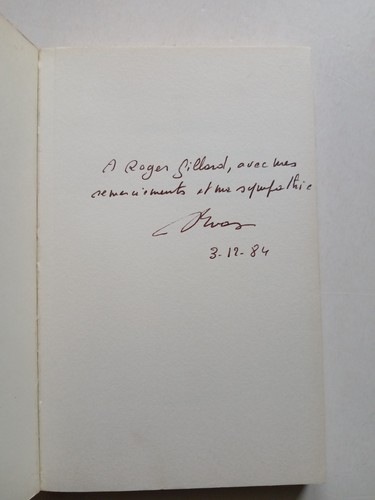 A Roger Gillard, avec mes
remerciements et ma sympathie
3-12-84